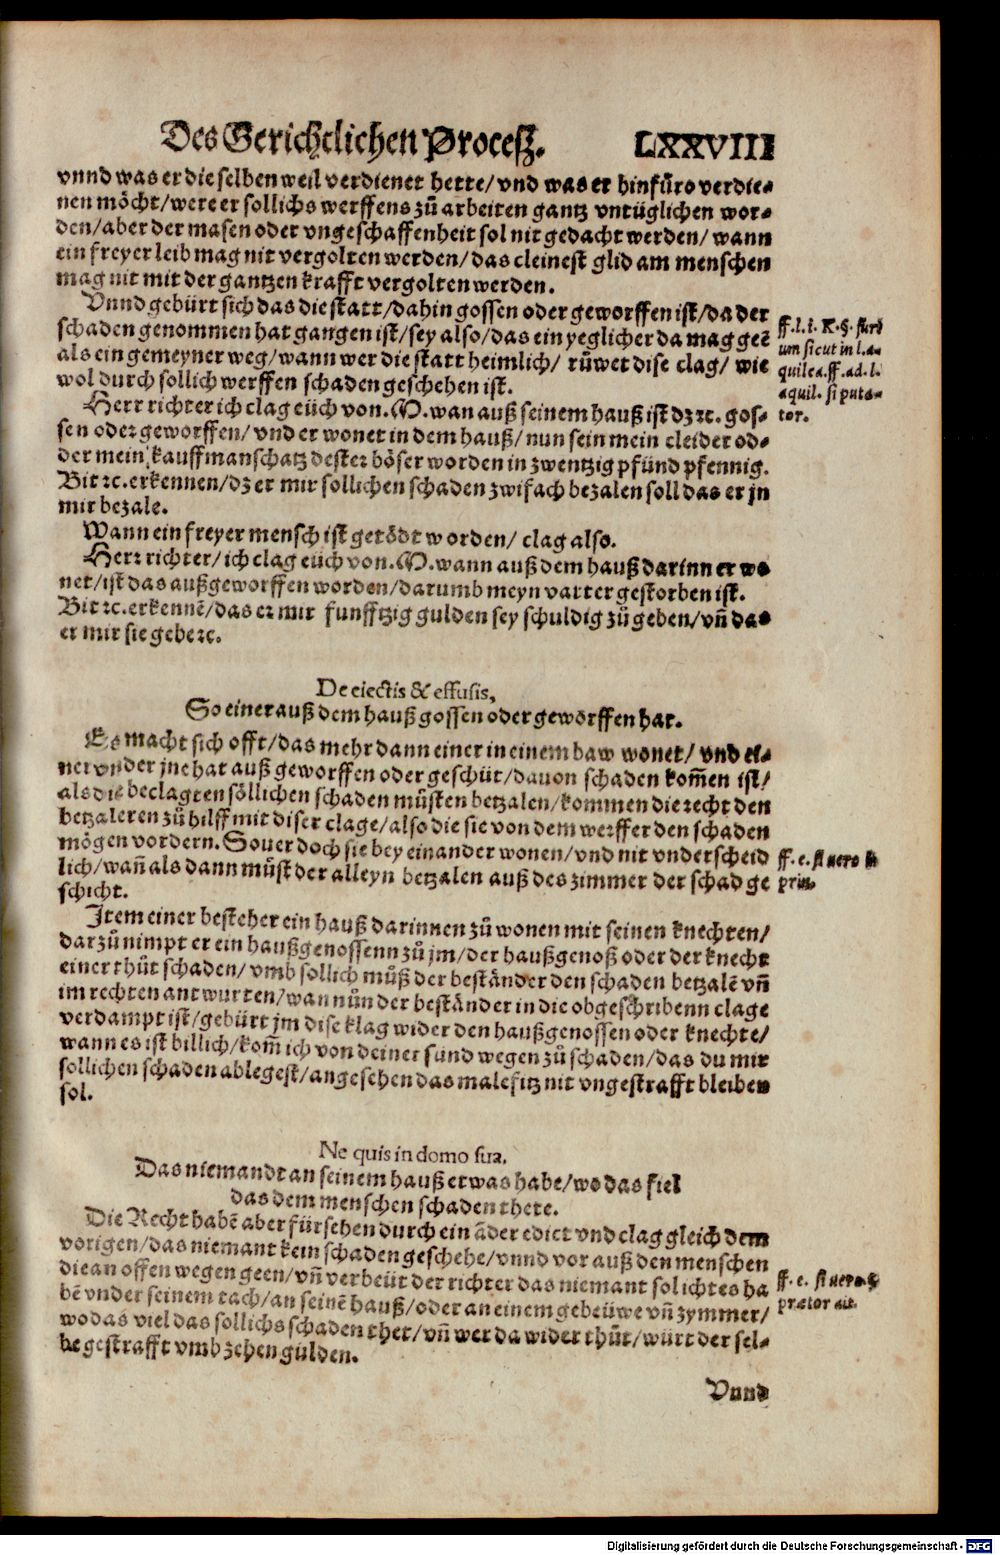 Des Gerichtlichen Procesz. LXXVIII
vnnd was er die selben weil verdienet hette/ vnd was er hinfůro verdie-
nen möcht/ were er sollichs werffens zů arbeiten gantz vntüglichen wor-
den/ aber der masen oder vngeschaffenheit sol nit gedacht werden/ wann
ein freyer leib mag nit vergolten werden/ das cleinest glid am menschen
mag nit mit der gantzen krafft vergolten werden.
Vnnd gebürt sich das die statt/ dahin gossen oder geworffen ist/ da der
schaden genommen hat gangen ist/ sey also/ das ein yeglicher da mag geē
als ein gemeyner weg/ wann wer die statt heimlich/ růwet dise clag/ wie
wol durch sollich werffen schaden geschehen ist.
ff. l. i. R. §. 
um sicut in l. a-
quilea. ff. ad. l.
aquil. si puta-
tor.
Herr richter ich clag eüch von. N. wan auß seinem hauß ist dz ꝛc. gos-
sen oder geworffen/ vnd er wonet in dem hauß/ nun sein mein cleider od-
der mein kauffmanschatz dester böser worden in zwentzig pfünd pfennig.
Bit ꝛc. erkennen/ dz er mir sollichen schaden zwifach bezalen soll das er jn
mir bezale.
Wann ein freyer mensch ist getödt worden/ clag also.
Herr richter/ ich clag eüch von. N. wann auß dem hauß darinn er wo
net/ ist das außgeworffen worden/ darumb meyn vatter gestorben ist.
Bit ꝛc. erkennē/ das er mir funfftzig gulden sey schuldig zů geben/ vñ das
er mir sie gebe ꝛc.
De eiectis & effusis,
So einer auß dem hauß gossen oder geworffen hat.
Es macht sich offt/ das mehr dann einer in einem baw wonet/ vnd ei-
ner vnder jne hat auß geworffen oder geschüt/ dauon schaden kom̄en ist/
als die beclagten söllichen schaden můsten betzalen/ kommen die recht den
betzaleren zů hilff mit diser clage/ also die sie von dem werffer den schaden
mögen vordern. So uer doch sie bey einander wonen/ vnd nit vnderscheid
lich/ wañ als dann můst der alleyn betzalen auß des zimmer der schad ge
schicht.
ff. e. si uero
prin.
Item einer bestehet ein hauß darinnen zů wonen mit seinen knechten/
dar zů nimpt er ein haußgenossenn zů jm/ der haußgenoß oder der knecht
einer thůt schaden/ vmb sollich můß der beständer den schaden betzalē vñ
im rechten antwurten/ wann nůn der beständer in die obgeschribenn clage
verdampt ist/ gebürt jm dise klag wider den haußgenossen oder knechte/
wann es ist billich/ kom̄ ich von deiner sünd wegen zů schaden/ das du mir
sollichen schaden ablegest/ angesehen das malefitz nit vngestrafft bleiben
sol.
Ne quis in domo sua.
Das niemandt an seinem hauß etwas habe/ wo das fiel
das dem menschen schaden thete.
Die Recht habē aber fürsehen durch ein āder edict vnd clag gleich dem
vorigen/ das niemant kein schaden geschehe/ vnnd vor auß den menschen
die an offen wegen geen/ vñ verbeüt der richter das niemant solichtes ha
bē vnder seinem tach/ an seinē hauß/ oder an einem gebeüwe vñ zymmer/
wo das viel das sollichs schaden thet/ vñ wer da wider thůt/ würt der sel-
be gestrafft vmb zehen gülden.
ff. e. si uero. §
prætor ait.
Vnnd
Digitalisierung gefördert durch die Deutsche Forschungsgemeinschaft - DFG